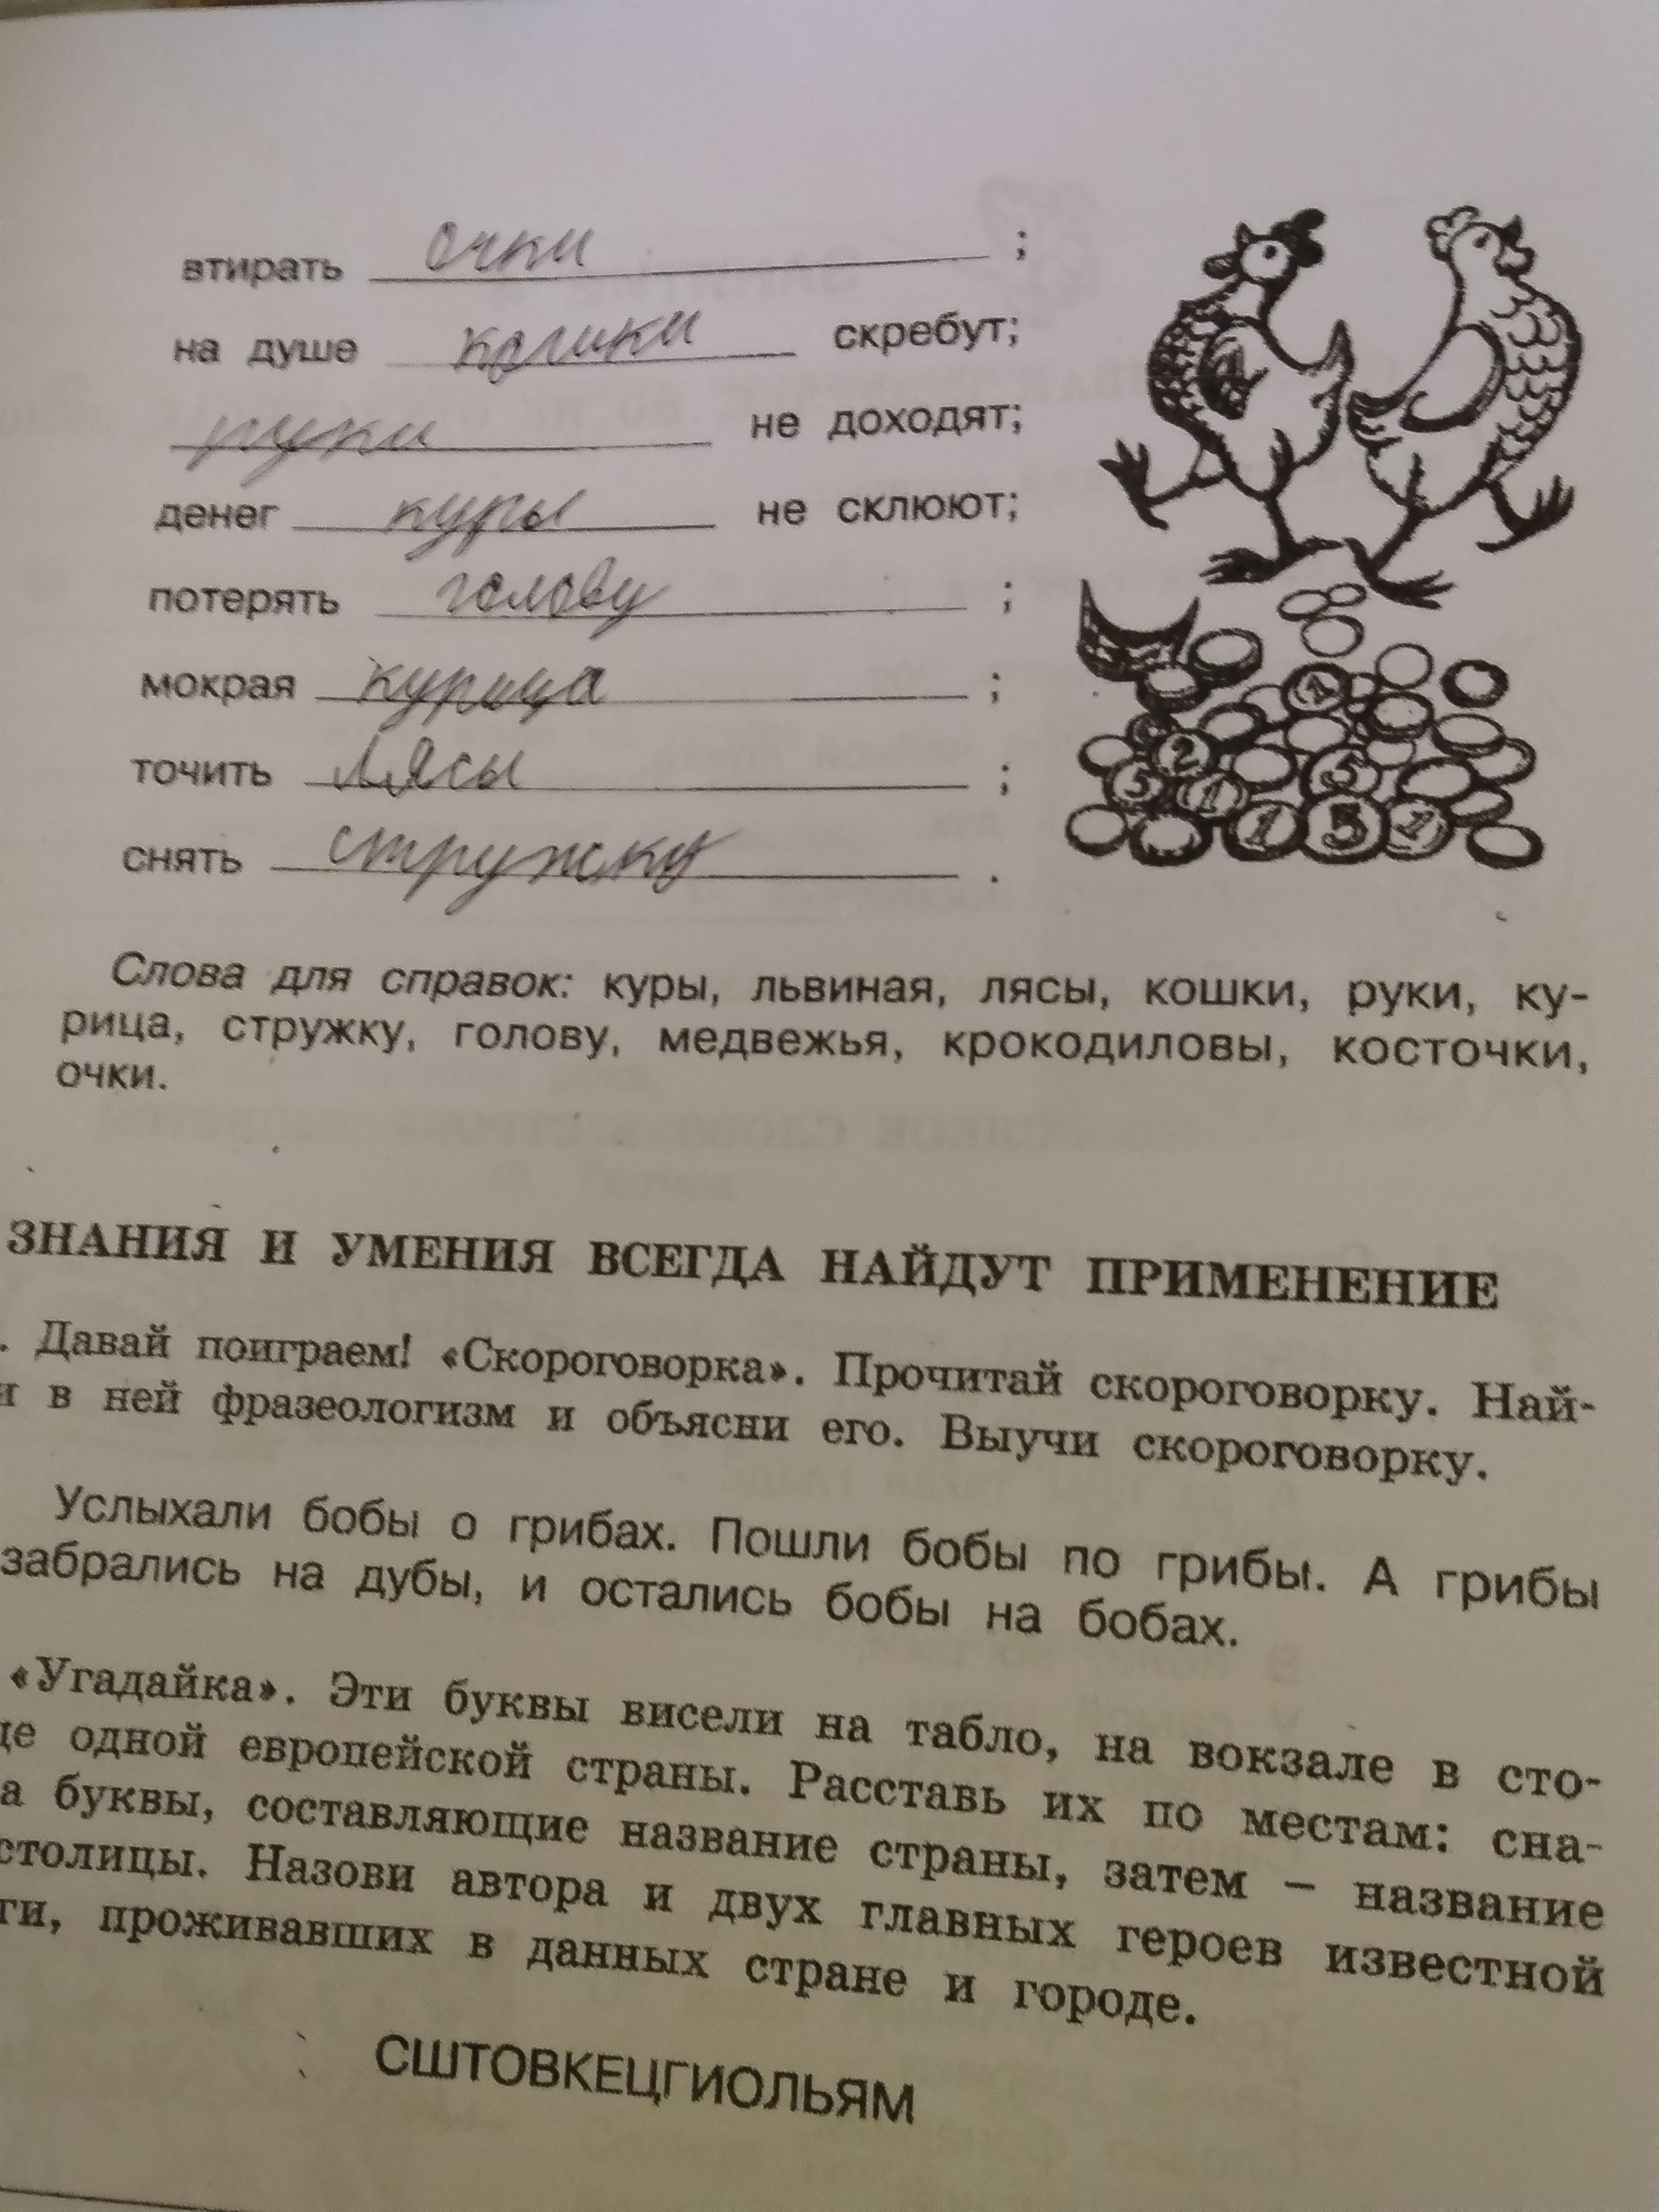 втирать очки ;
на душе кошки скребут;
руки не доходят;
денег куры не склюют;
потерять голову ;
мокрая курица ;
точить лясы ;
снять стружку .
Слова для справок: куры, львиная, лясы, кошки, руки, ку-
рица, стружку, голову, медвежья, крокодиловы, косточки,
очки.
ЗНАНИЯ И УМЕНИЯ ВСЕГДА НАЙДУТ ПРИМЕНЕНИЕ
. Давай поиграем! «Скороговорка». Прочитай скороговорку. Най-
и в ней фразеологизм и объясни его. Выучи скороговорку.
Услыхали бобы о грибах. Пошли бобы по грибы. А грибы
забрались на дубы, и остались бобы на бобах.
«Угадайка». Эти буквы висели на табло, на вокзале в сто-
це одной европейской страны. Расставь их по местам: сна-
а буквы, составляющие название страны, затем – название
столицы. Назови автора и двух главных героев известной
ги, проживавших в данных стране и городе.
СШТОВКЕЦГИОЛЬЯМ
1
2
5
5
1
1
5
1